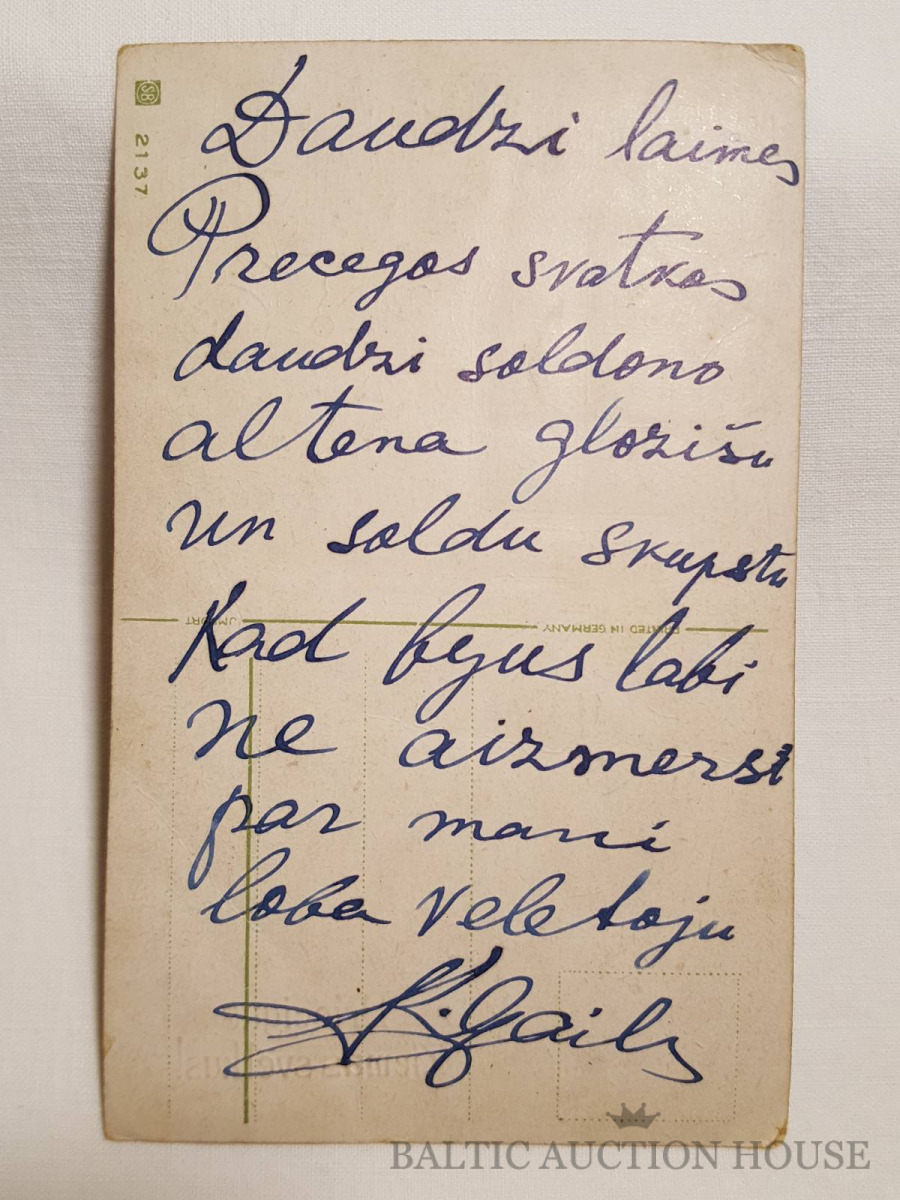 SB
2137
Daudzi laimes
Precegos svatkos
daudzi soldono
altena glozišu
un soldu skupstu
PRINTED IN GERMANY
Kad byus labi
ne aizmersi
par mani
loba veletoju
K. Gails
BALTIC AUCTION HOUSE